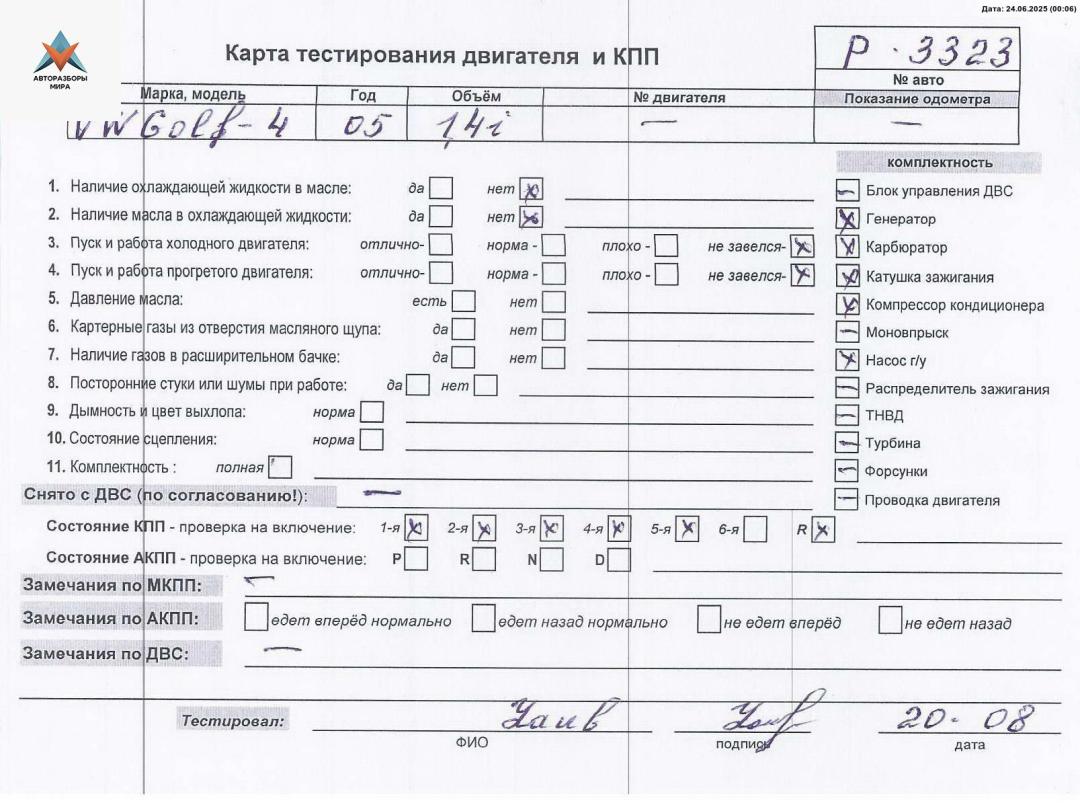 Дата: 24.06.2025 (00:06)
АВТОРАЗБОРЫ
МИРА
Карта тестирования двигателя и КПП
Р · 3323
№ авто
Марка, модель Год Объём № двигателя Показание одометра
VW Golf-4 05 1,4i — —
комплектность
1. Наличие охлаждающей жидкости в масле: да нет x
Блок управления ДВС
2. Наличие масла в охлаждающей жидкости: да нет x
Генератор
3. Пуск и работа холодного двигателя: отлично- норма - плохо - не завелся- x
Карбюратор
4. Пуск и работа прогретого двигателя: отлично- норма - плохо - не завелся- x
Катушка зажигания
5. Давление масла: есть нет
Компрессор кондиционера
6. Картерные газы из отверстия масляного щупа: да нет
Моновпрыск
7. Наличие газов в расширительном бачке: да нет
Насос г/у
8. Посторонние стуки или шумы при работе: да нет
Распределитель зажигания
9. Дымность и цвет выхлопа: норма
ТНВД
10. Состояние сцепления: норма
Турбина
11. Комплектность : полная
Форсунки
Снято с ДВС (по согласованию!): —
Проводка двигателя
Состояние КПП - проверка на включение: 1-я x 2-я x 3-я x 4-я x 5-я x 6-я R x
Состояние АКПП - проверка на включение: P R N D
Замечания по МКПП: —
Замечания по АКПП: едет вперёд нормально едет назад нормально не едет вперёд не едет назад
Замечания по ДВС: —
Тестировал: 20. 08
ФИО подпись дата